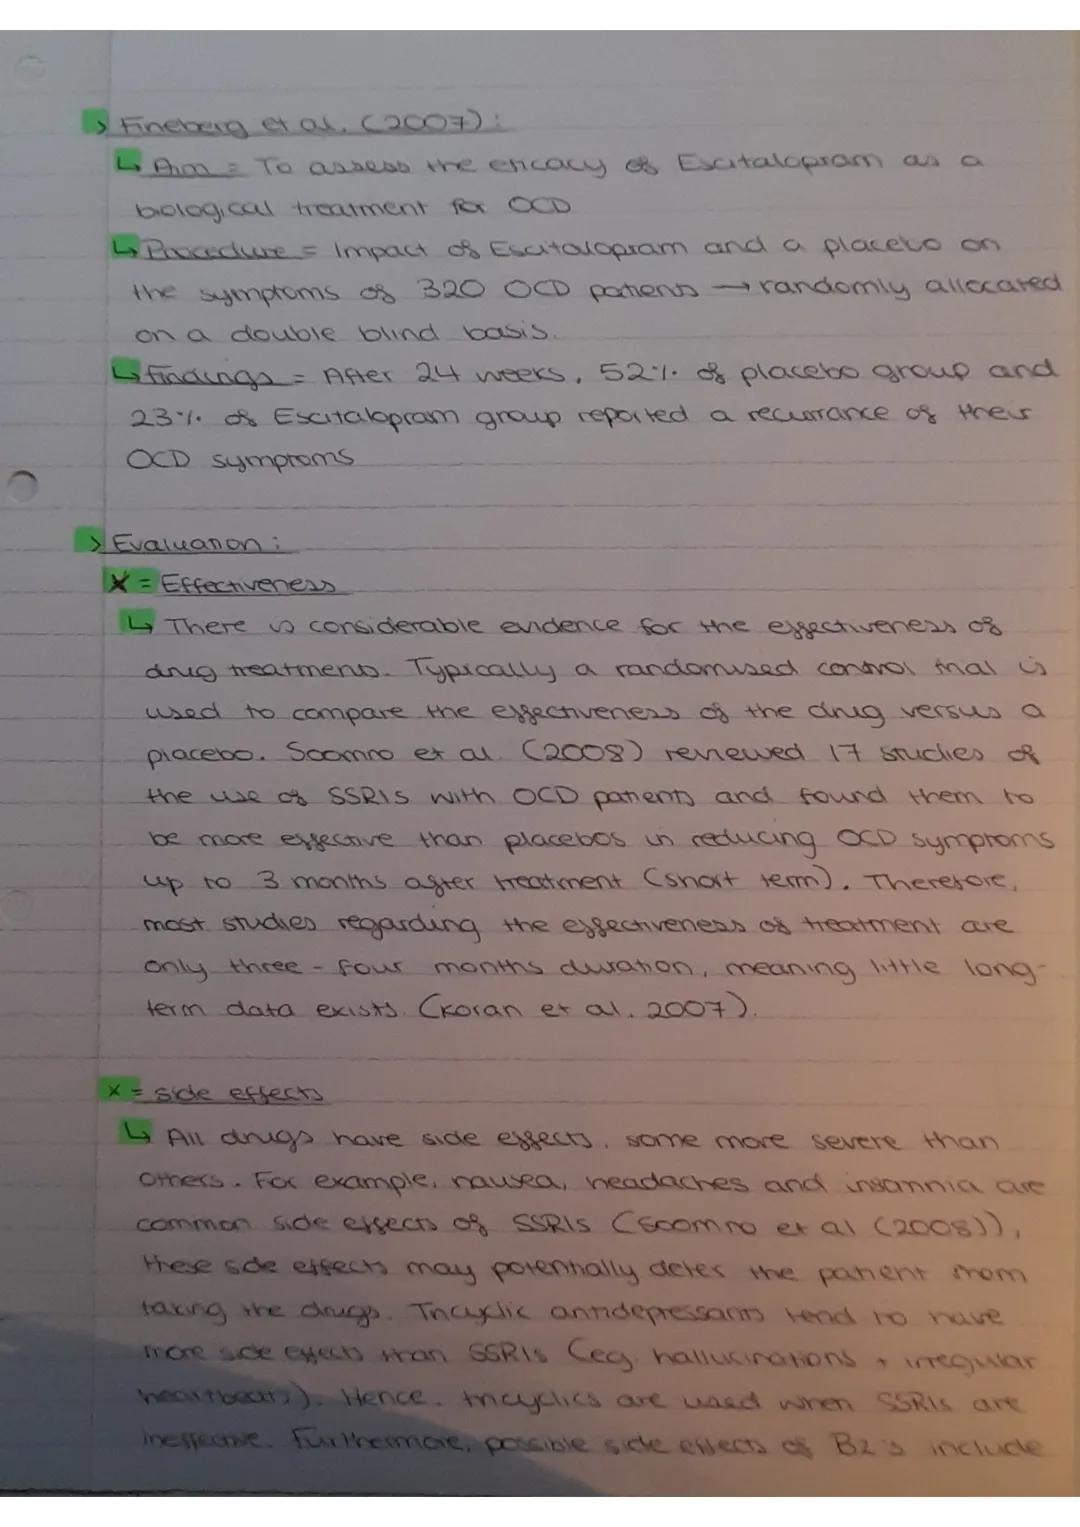 > Fineberg et al. (2007):
↳ Aim = To assess the eficacy of Escitalopram as a
biological treatment for OCD
↳ Procedure = Impact of Escitalopram and a placebo on
the symptoms of 320 OCD patients → randomly allocated
on a double blind basis.
↳ Findings = After 24 weeks, 52% of placebo group and
23% of Escitalopram group reported a recurrance of their
OCD symptoms
> Evaluation:
X = Effectiveness
↳ There is considerable evidence for the effectiveness of
drug treatments. Typically a randomised control trial is
used to compare the effectiveness of the drug versus a
placebo. Soomro et al. (2008) reviewed 17 studies of
the use of SSRIs with OCD patients and found them to
be more effective than placebos in reducing OCD symptoms
up to 3 months after treatment (short term). Therefore,
most studies regarding the effectiveness of treatment are
only three-four months duration, meaning little long-
term data exists. (Koran et al. 2007).
X = side effects
↳ All drugs have side effects, some more severe than
others. For example, nausea, headaches and insomnia are
common side effects of SSRIs (Soomro et al (2008)),
these side effects may potentially deter the patient from
taking the drugs. Tricyclic antidepressants tend to have
more side effects than SSRIs (eg. hallucinations + irregular
heartbeats). Hence, tricyclics are used when SSRIs are
ineffective. Furthermore, possible side effects of BZ's include